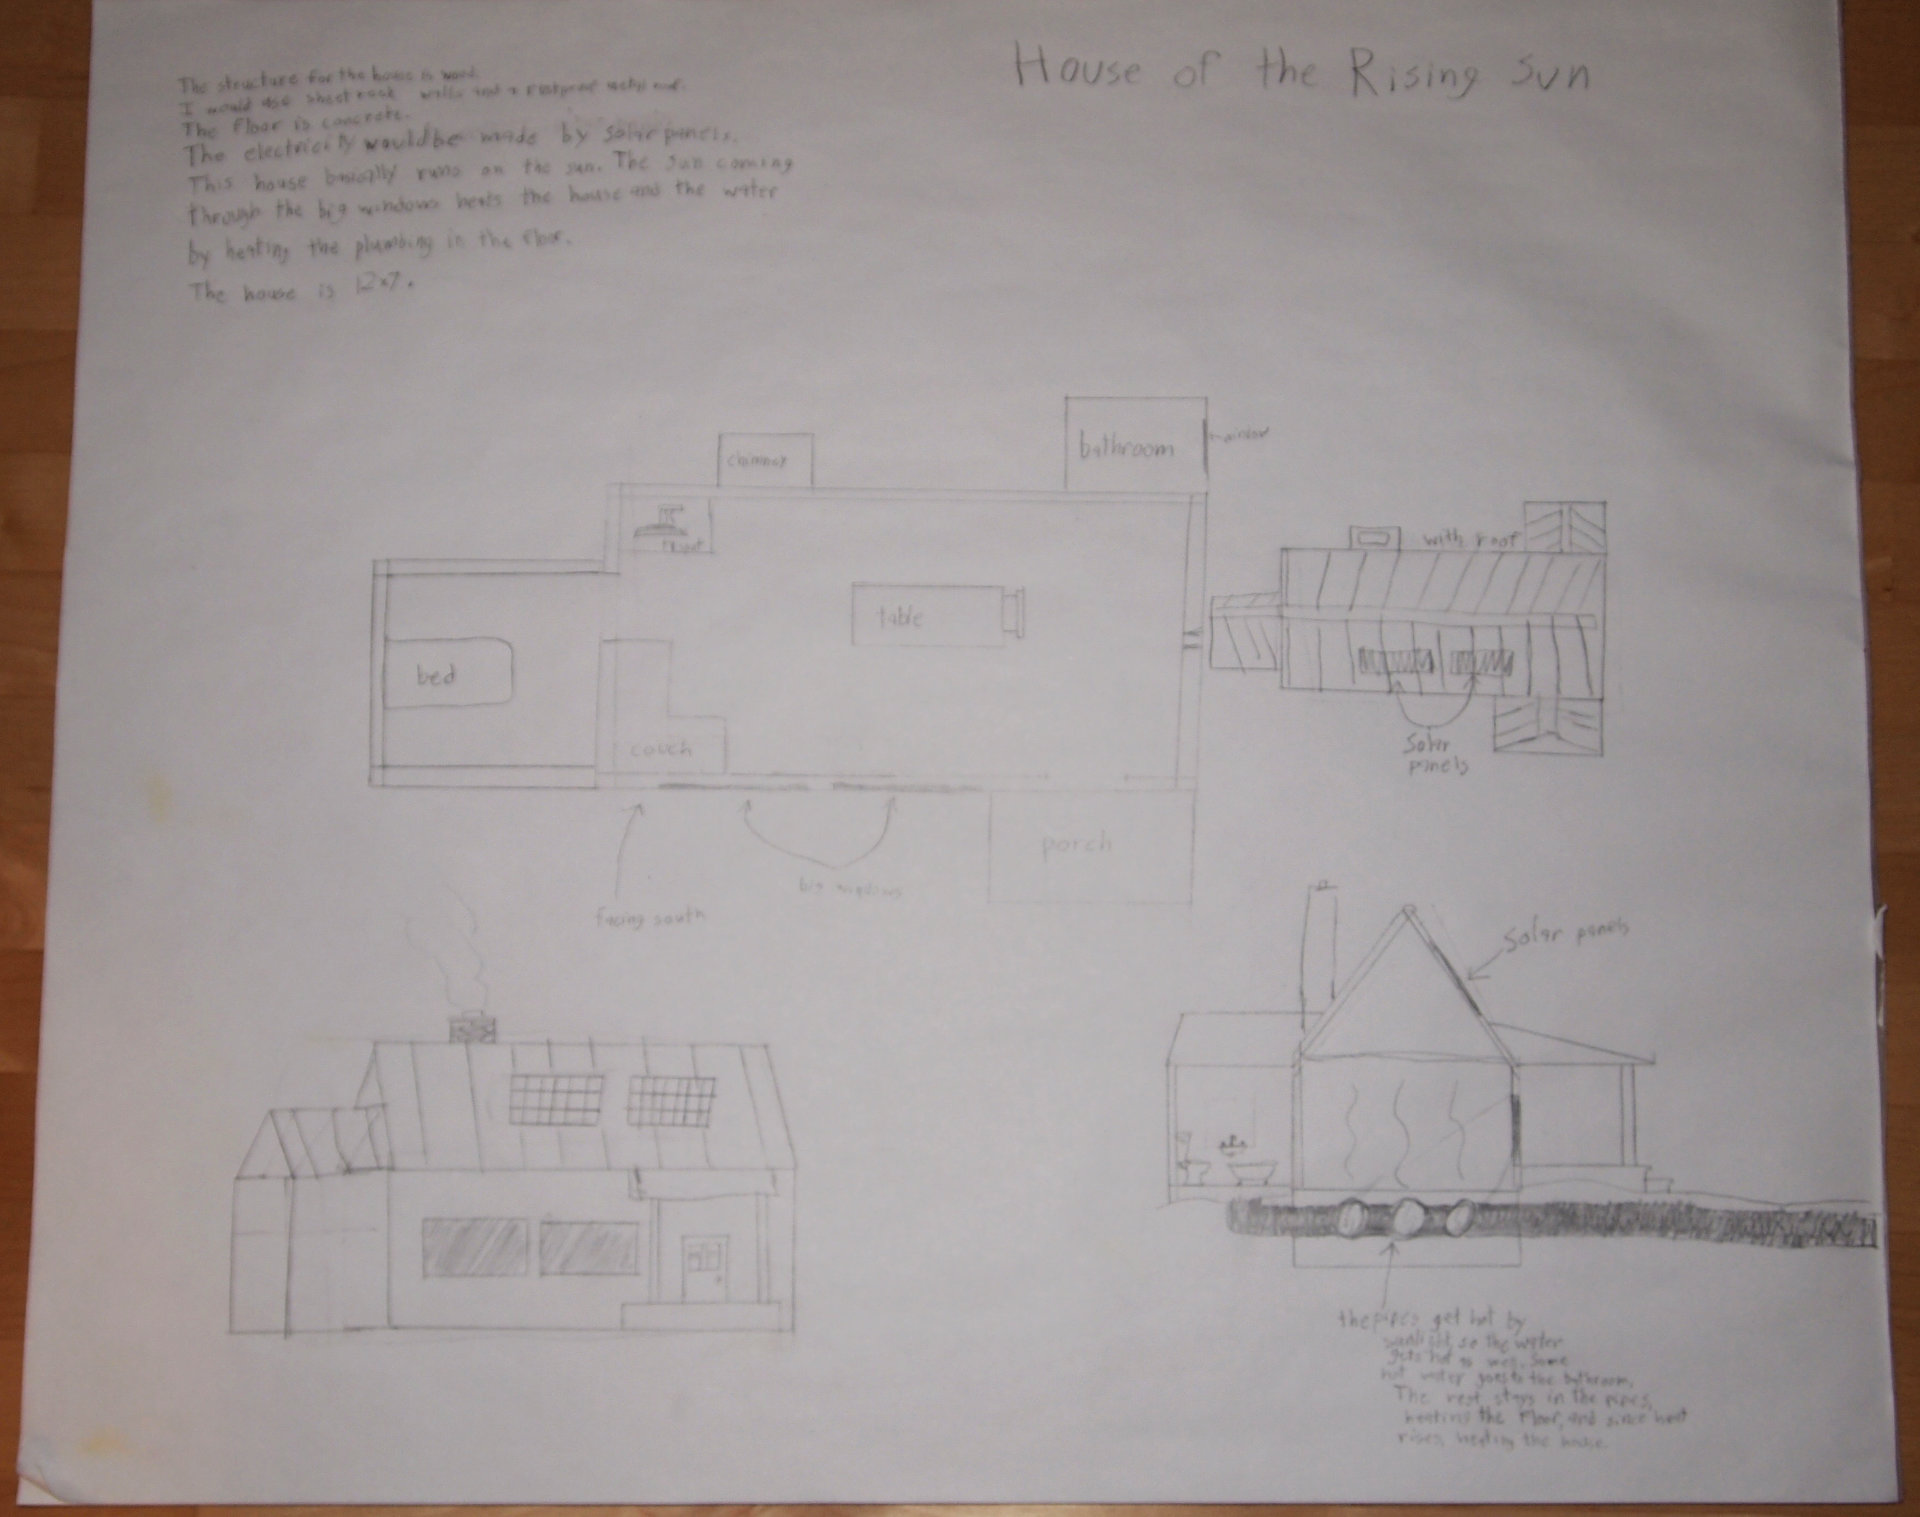 House of the Rising Sun
The structure for the house is wood.
I would use sheetrock walls and a metal roof.
The floor is concrete.
The electricity would be made by solar panels.
This house basically runs on the sun. The sun coming
through the big windows heats the house and the water
by heating the plumbing in the floor.
The house is 12x7.
chimney
bathroom
window
table
bed
couch
porch
big windows
facing south
with roof
Solar
panels
Solar panels
the pipes get hot by
sunlight so the water
gets hot as well. Some
hot water goes to the bathroom.
The rest stays in the pipes,
heating the floor, and since heat
rises, heating the house.